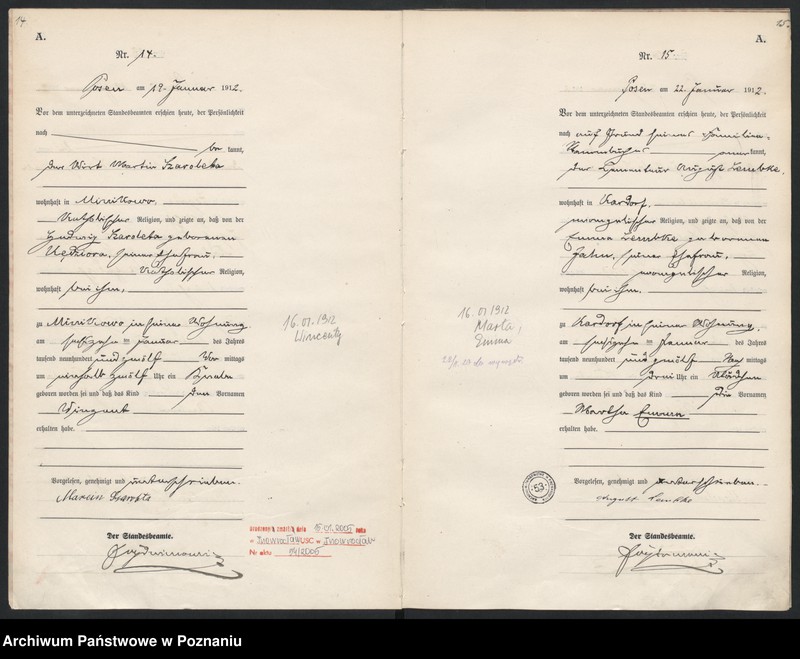 14
A.
Nr. 14.
Posen am 19. Januar 1912.
Vor dem unterzeichneten Standesbeamten erschien heute, der Persönlichkeit
nach
be kannt,
der Wirt Martin
wohnhaft in Minikowo,
katholischer Religion, und zeigte an, daß von der
Hedwig geborenen
seiner Ehefrau,
katholischer Religion,
wohnhaft bei ihm,
zu Minikowo in seiner Wohnung
am sechzehnten Januar des Jahres
tausend neunhundert und zwölf Vor mittags
um einhalb zwölf Uhr ein Knabe
geboren worden sei und daß das Kind den Vornamen
Vinzent
erhalten habe.
Vorgelesen, genehmigt und unterschrieben.
Marcin
Der Standesbeamte.
16.01.1912
Wincenty
15.01.2005
Inowrocław USC w Inowrocław
Nr aktu
A.
Nr. 15
Posen am 22. Januar 1912.
Vor dem unterzeichneten Standesbeamten erschien heute, der Persönlichkeit
nach auf Grund seines Familien-
Stammbuches anerkannt,
der August Lembke,
wohnhaft in Kardorf,
evangelischer Religion, und zeigte an, daß von der
Emma Lembke geborenen
Jahn, seiner Ehefrau,
evangelischer Religion,
wohnhaft bei ihm,
zu Kardorf in seiner Wohnung,
am sechzehnten Januar des Jahres
tausend neunhundert und zwölf Nach mittags
um drei Uhr ein Mädchen
geboren worden sei und daß das Kind die Vornamen
Martha Emma
erhalten habe.
Vorgelesen, genehmigt und unterschrieben.
August Lembke
Der Standesbeamte.
16.01.1912
Marta,
Emma
53
Archiwum Państwowe w Poznaniu